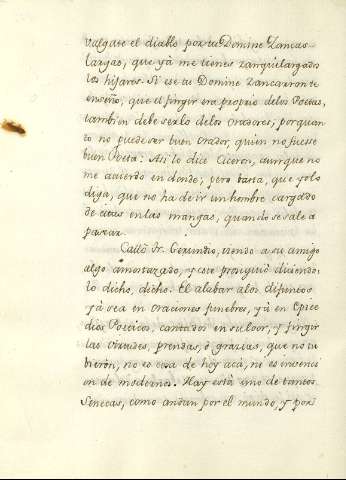 valgate el diablo por tu Domine Zancas-
largas, que yá me tienes zanquilargados
los hijares. Si ese tu Domine Zancarron te
enseñó, que el fingir era proprio de los Poetas,
tambien debe serlo de los Oradores; porquan
to no puede ser buen orador, quien no fuese
buen Poeta: Asi lo dice Ciceron, aunque no
me acuerdo en donde; pero basta, que yo lo
diga, que no ha de ir un hombre cargado
de citas en las mangas, quando se sale a
pasear.
Calló Fr. Gerundio, viendo a su amigo
algo amostazado, y este prosiguió diciendo:
lo dicho, dicho. El alabar a los difuntos
yá sea en oraciones funebres, yá en Epice
dios Poeticos, cantados en su loor, y fingir
las virtudes, prendas, ó gracias, que no tu
bieron, no es cosa de hoy acá, ni es invenci
on de modernos. Hay está uno de tantos
Senecas, como andan por el mundo, y por